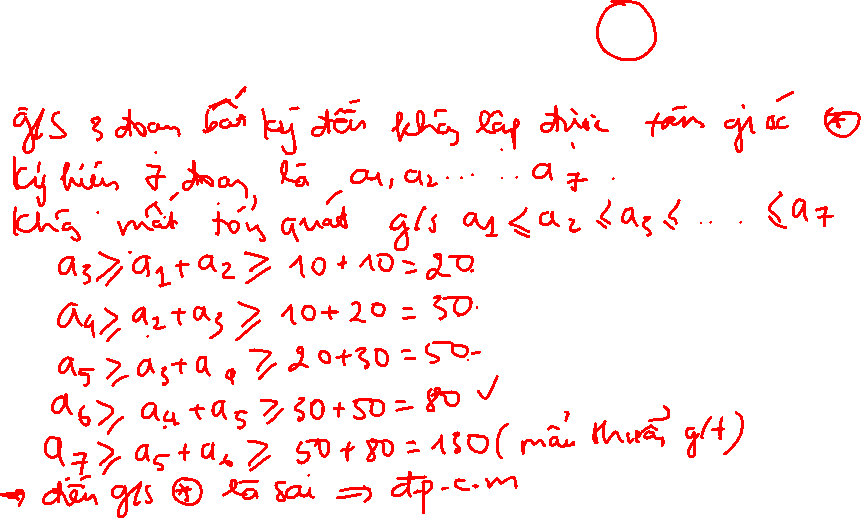 g/s 3 đoạn bất kỳ đều không lập được tam giác (*)
ký hiệu 7 đoạn là a1, a2 ..... a7.
không mất tổng quát g/s a1 ⩽ a2 ⩽ a3 ⩽ .... ⩽ a7
a3 ⩾ a1 + a2 ⩾ 10 + 10 = 20.
a4 ⩾ a2 + a3 ⩾ 10 + 20 = 30.
a5 ⩾ a3 + a4 ⩾ 20 + 30 = 50.
a6 ⩾ a4 + a5 ⩾ 30 + 50 = 80 ✓
a7 ⩾ a5 + a6 ⩾ 50 + 80 = 130 (mâu thuẫn g/t)
→ điều g/s (*) là sai ⇒ đp.c.m